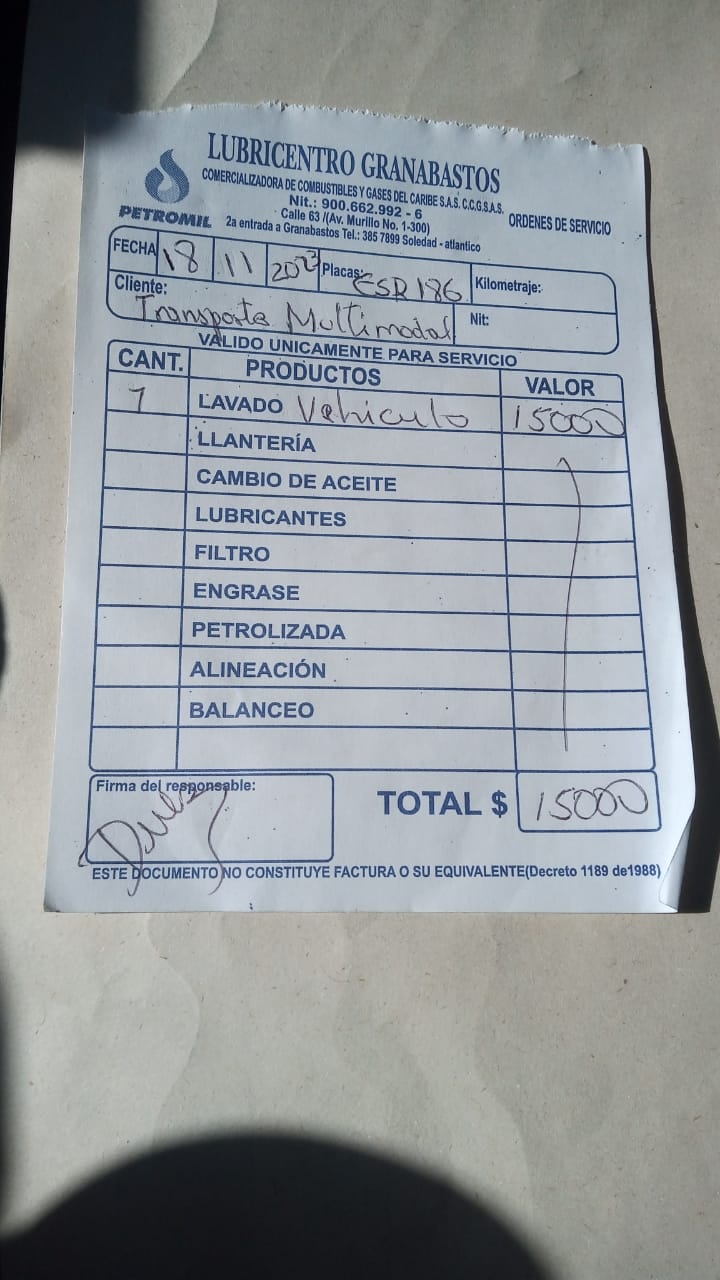 LUBRICENTRO GRANABASTOS
COMERCIALIZADORA DE COMBUSTIBLES Y GASES DEL CARIBE S.A.S. C.C.G.S.A.S.
Nit.: 900.662.992 - 6
Calle 63 /(Av. Murillo No. 1-300)
ORDENES DE SERVICIO
PETROMIL
2a entrada a Granabastos Tel.: 385 7899 Soledad - atlantico
FECHA 18 11 2023 Placas: ESR186 Kilometraje:
Cliente: Transporte Multimodal Nit:
VALIDO UNICAMENTE PARA SERVICIO
CANT. PRODUCTOS VALOR
1 LAVADO Vehiculo 15000
LLANTERÍA
CAMBIO DE ACEITE
LUBRICANTES
FILTRO
ENGRASE
PETROLIZADA
ALINEACIÓN
BALANCEO
Firma del responsable:
TOTAL $ 15000
ESTE DOCUMENTO NO CONSTITUYE FACTURA O SU EQUIVALENTE(Decreto 1189 de1988)